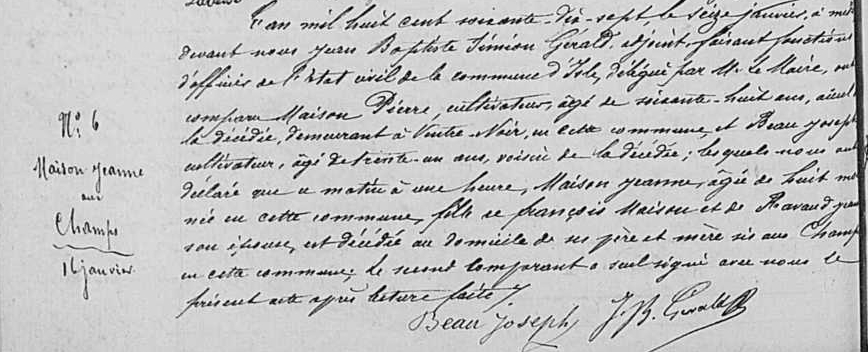 L'an mil huit cent soixante-dix-sept, le seize janvier, à midi
devant nous Jean Baptiste Siméon Gérald, adjoint, faisant fonctions
d'officier de l'état civil de la commune d'Isle, délégué par Mr le Maire, ont
comparu Maison Pierre, cultivateur, âgé de soixante-huit ans, aieul de
la décédée, demeurant à Ventre-Noir, en cette commune, et Beau Joseph
cultivateur, âgé de trente-un ans, voisin de la décédée; lesquels nous ont
N° 6
Maison Jeanne
aux
Champs
16 janvier
déclaré que ce matin à une heure, Maison Jeanne, âgée de huit mois
née en cette commune, fille de François Maison et de Ravaud Jeanne
son épouse, est décédée au domicile de ses père et mère sis aux Champs
en cette commune; le second comparant a seul signé avec nous le
présent acte après lecture faite.
Beau Joseph J. B. Gérald